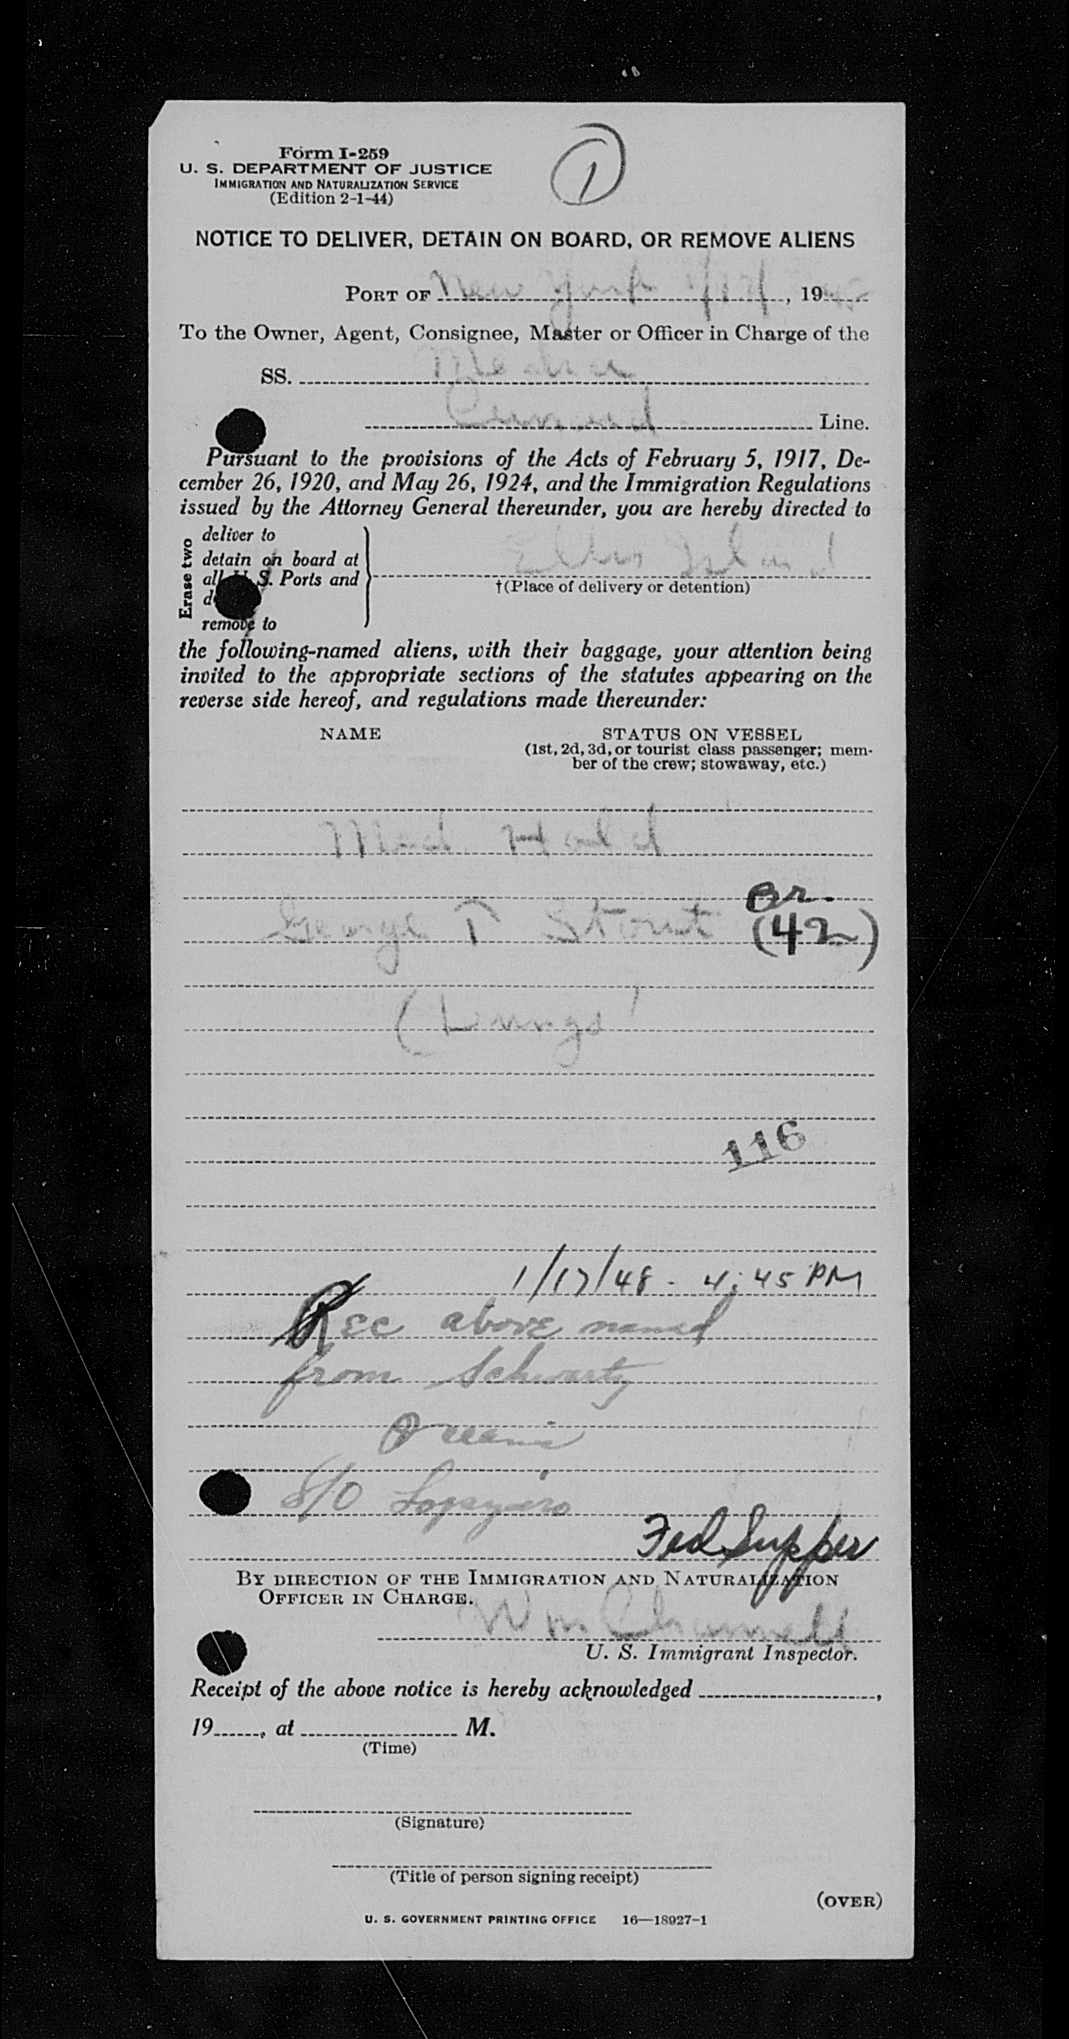 Form I-259
U. S. DEPARTMENT OF JUSTICE
IMMIGRATION AND NATURALIZATION SERVICE
(Edition 2-1-44)
1
NOTICE TO DELIVER, DETAIN ON BOARD, OR REMOVE ALIENS
PORT OF New York 1/17/, 1948
To the Owner, Agent, Consignee, Master or Officer in Charge of the
SS. Media
Cunard Line.
Pursuant to the provisions of the Acts of February 5, 1917, De-
cember 26, 1920, and May 26, 1924, and the Immigration Regulations
issued by the Attorney General thereunder, you are hereby directed to
Erase two
deliver to
detain on board at
all U. S. Ports and
remove to
Ellis Island
†(Place of delivery or detention)
the following-named aliens, with their baggage, your attention being
invited to the appropriate sections of the statutes appearing on the
reverse side hereof, and regulations made thereunder:
NAME STATUS ON VESSEL
(1st, 2d, 3d, or tourist class passenger; mem-
ber of the crew; stowaway, etc.)
Med. Hold
Br.
George T Stout (42)
(Lungs)
116
1/17/48 - 4:45 PM
Rec above named
from Schwartz
S/O
Fed Supper
BY DIRECTION OF THE IMMIGRATION AND NATURALIZATION
OFFICER IN CHARGE.
Wm
U. S. Immigrant Inspector.
Receipt of the above notice is hereby acknowledged ,
19 , at M.
(Time)
(Signature)
(Title of person signing receipt)
(OVER)
U. S. GOVERNMENT PRINTING OFFICE 16—18927-1